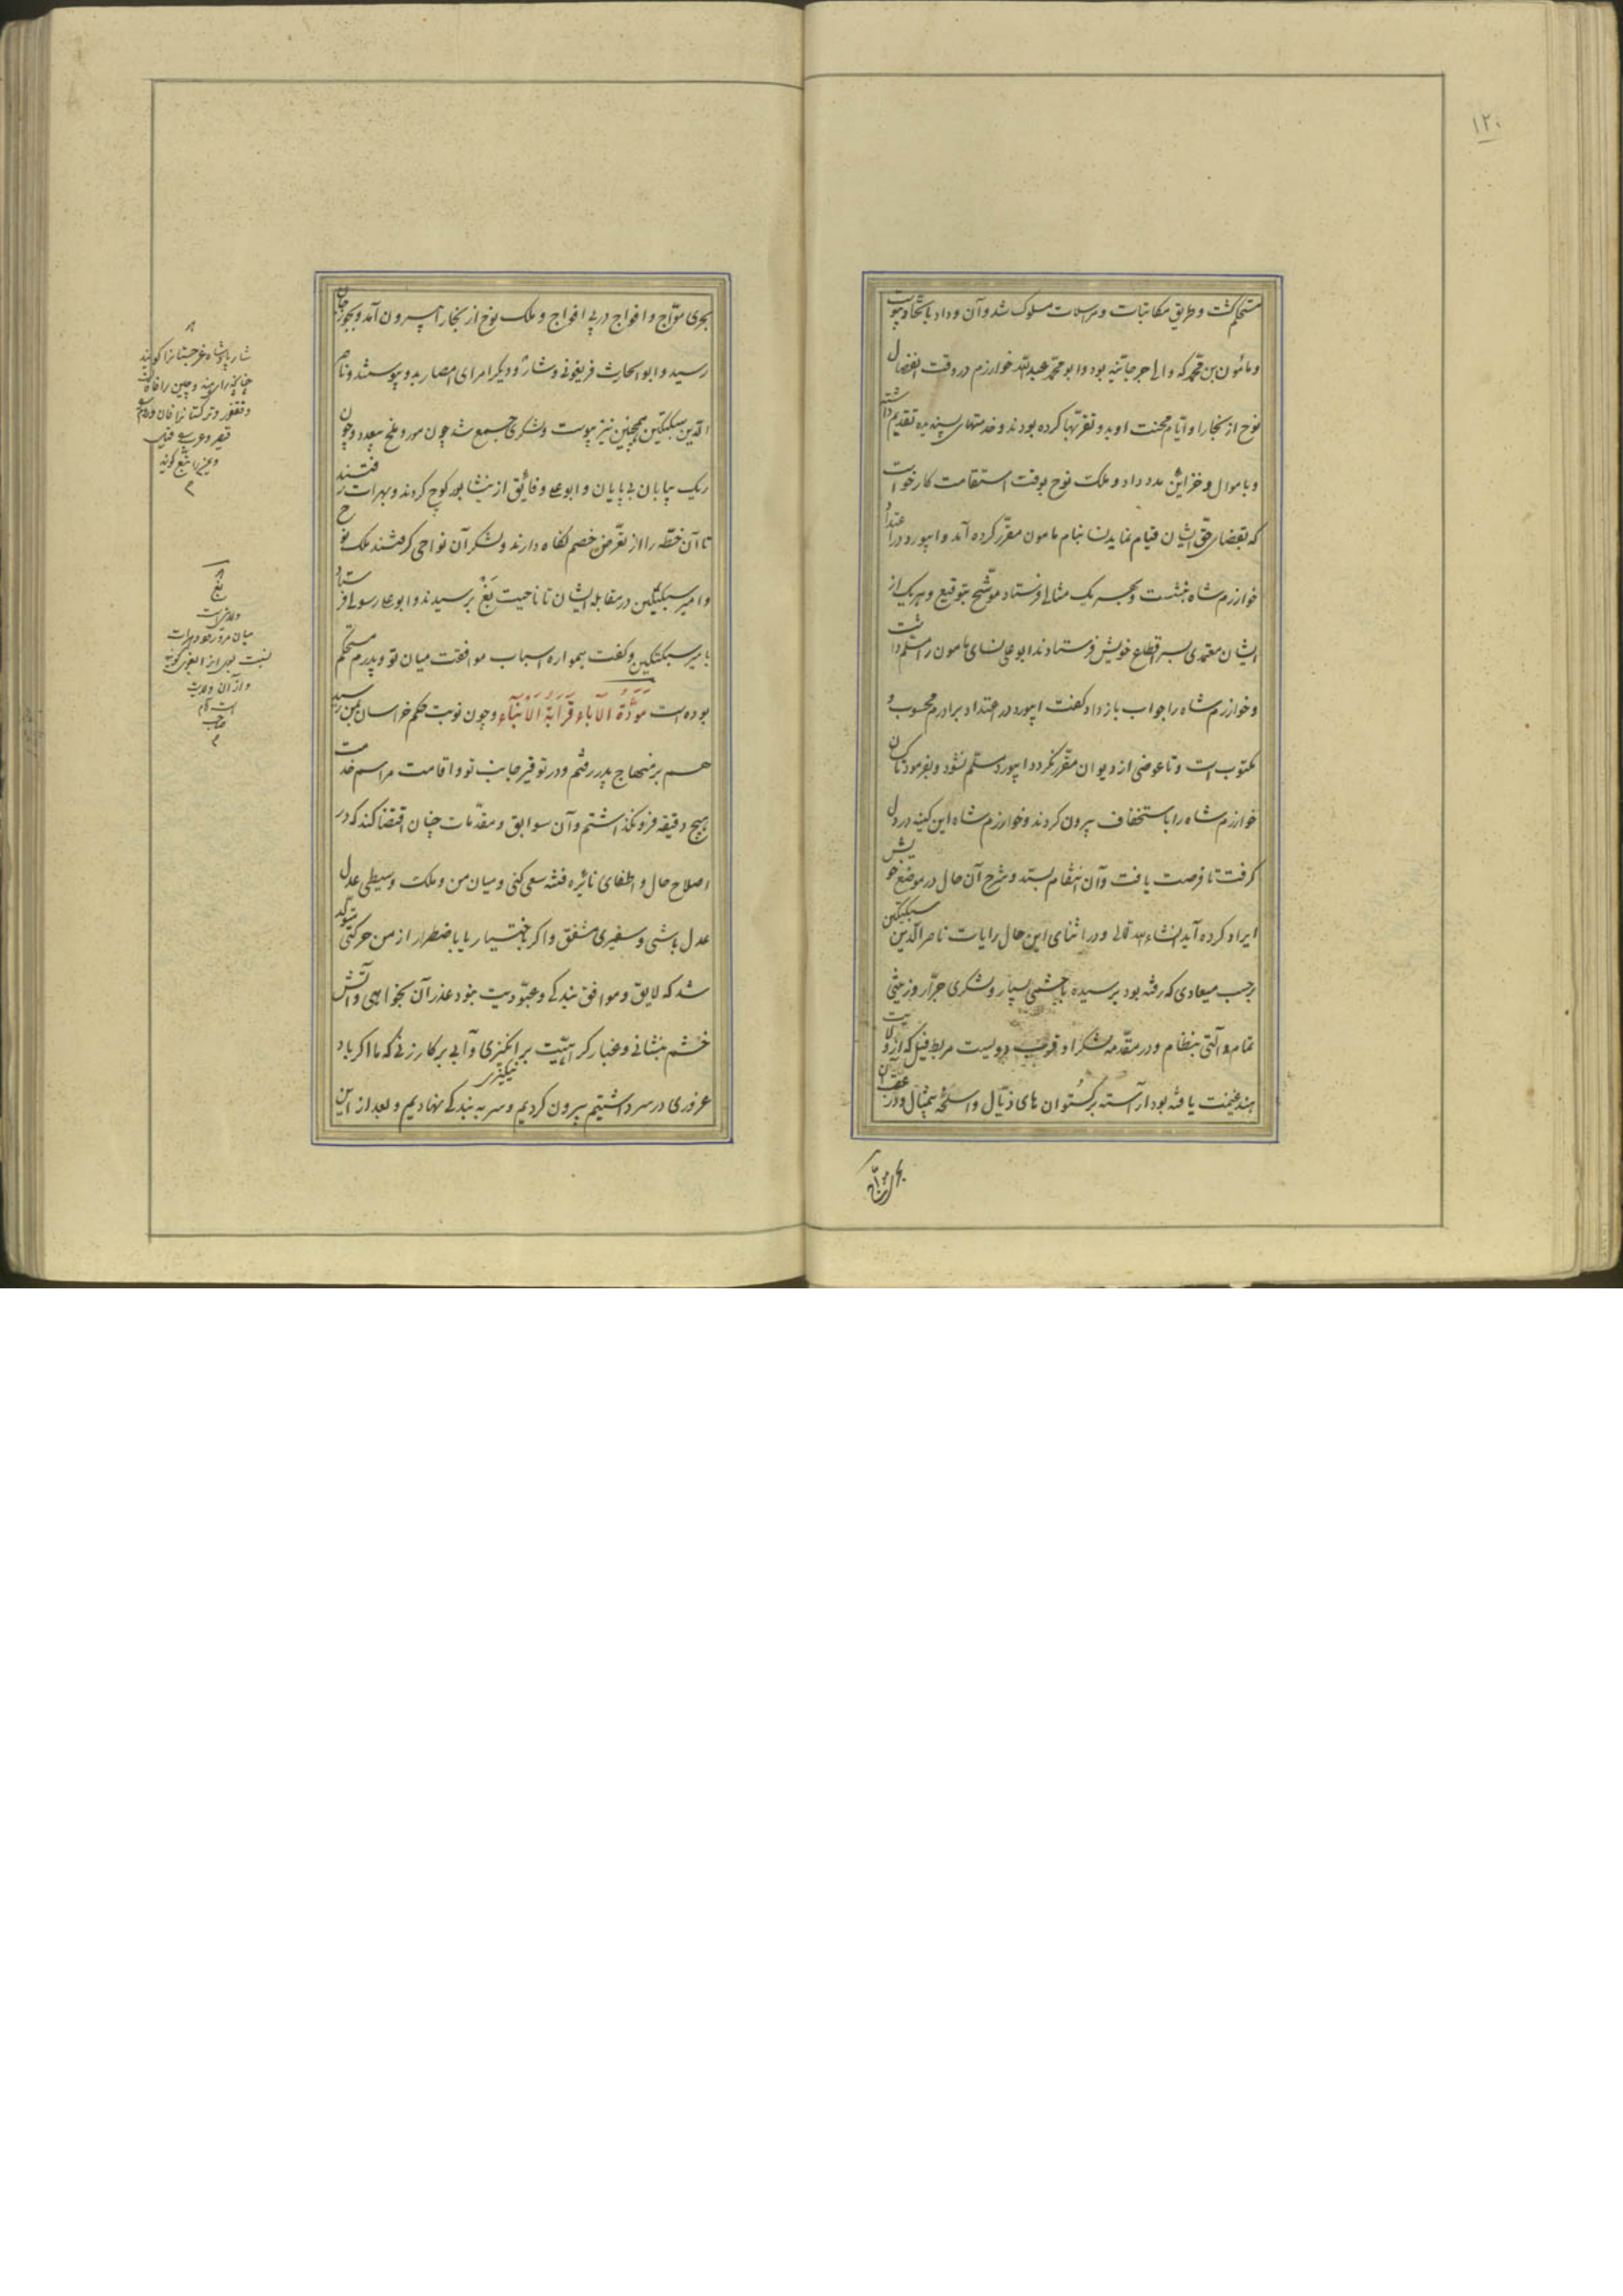 ۱۲۰
مستحکم گشت و طریق مکاتبات و مراسلات مسلوک شد و آن وداد باتحاد پیوست
و مأمون بن محمد که والی جرجانیه بود و ابو محمد عبدالله خوارزم در وقت انفصال
نوح از بخارا و ایام محنت او بدو تقربها کرده بودند و خدمتهای پسندیده تقدیم داشته
و باموال و خزاین مدد داد و ملک نوح بوقت استقامت کار خواست
که بقضای حق ایشان قیام نماید نسا بنام مامون مقرر کرده آمد و ابیورد در اعتداد
خوارزم شاه بنشست و بهر یک مثالی فرستاد موشح بتوقیع و هر یک از
ایشان معتمدی بسر اقطاع خویش فرستادند ابو علی نسای مامون را مسلم داشت
و خوارزم شاه را جواب باز داد و گفت ابیورد در اعتداد برادرم محسوب و
مکتوب است و تا عوضی از دیوان مقرر نگردد ابیورد مسلم نشود و بفرمود تا کسان
خوارزم شاه را باستخفاف بیرون کردند و خوارزم شاه این کینه در دل
گرفت تا فرصت یافت و آن انتقام بستد و شرح آن حال در موضع خویش
ایراد کرده آید انشاء الله تعالی و در اثنای این حال رایات ناصر الدین سبکتکین
برحسب میعادی که رفته بود برسید با حشمی بسیار و لشکری جرار و زینتی
تمام و آلتی بنظام و در مقدمه لشکر او قریب دویست مربط فیل که از ولایت
هند غنیمت یافته بود آراسته برگستوان های ذیال و اسلحه بیمثال و در عقب آن
بحری مواج
بحری مواج و افواج در پی افواج و ملک نوح از بخارا بیرون آمد و بجوزجان
رسید و ابو الحارث فریغونی و شار و دیگر امرای امصار بدو پیوستند و ناصر
الدین سبکتکین همچنین نیز پیوست و لشکری جمع شد چون مور و ملخ بیعدد و چون
ریگ بیابان بی پایان و ابو علی و فائق از نیشابور کوچ کردند و بهرات رفتند
تا آن خطه را از تعرض خصم نگاه دارند و لشکر آن نواحی گرفتند ملک نوح
و امیر سبکتکین در مقابله ایشان تا ناحیت بَغْ برسیدند و ابو علی رسولی فرستاد
بامیر سبکتکین و گفت همواره اسباب موافقت میان تو و پدرم مستحکم
بوده است مَوَدَّةُ الآباءِ قَرَابَةُ الأَبْنَاءِ و چون نوبت حکم خراسان بمن رسید
هم بر منهاج پدر رفتم و در توقیر جانب تو و اقامت مراسم خدمت
هیچ دقیقه فرو نگذاشتم و آن سوابق و مقدمات چنان اقتضا کند که در
اصلاح حال و اطفای نائره فتنه سعی کنی و میان من و ملک وسیطی عدل
عدل باشی و سفیری مشفق و اگر باختیار یا باضطرار از من حرکتی متولد
شد که لایق و موافق بندگی و عبودیت نبود عذر آن بخواهی و آتش
خشم بنشانی و غبار کراهیت برانگیزی و آبی بر کار زنی که ما اگر باد
نینگیزی
غروری در سر داشتیم بیرون کردیم و سر به بندگی نهادیم و بعد از این
شار پادشاه غرجستانرا گویند
و فغفور و ترکستانرا خان و روم را
و یمن را تبع گویند
بغ
ولایتی است
میان مرو رود و هرات